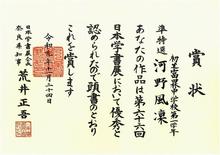 賞状
準特選
河野風凜
あなたの作品は第六十六回
日本学書展において優秀と
認められたので頭書のとおり
これを賞します
令和元年十一月二十四日
日本学書展会長
奈良県知事
荒井正吾